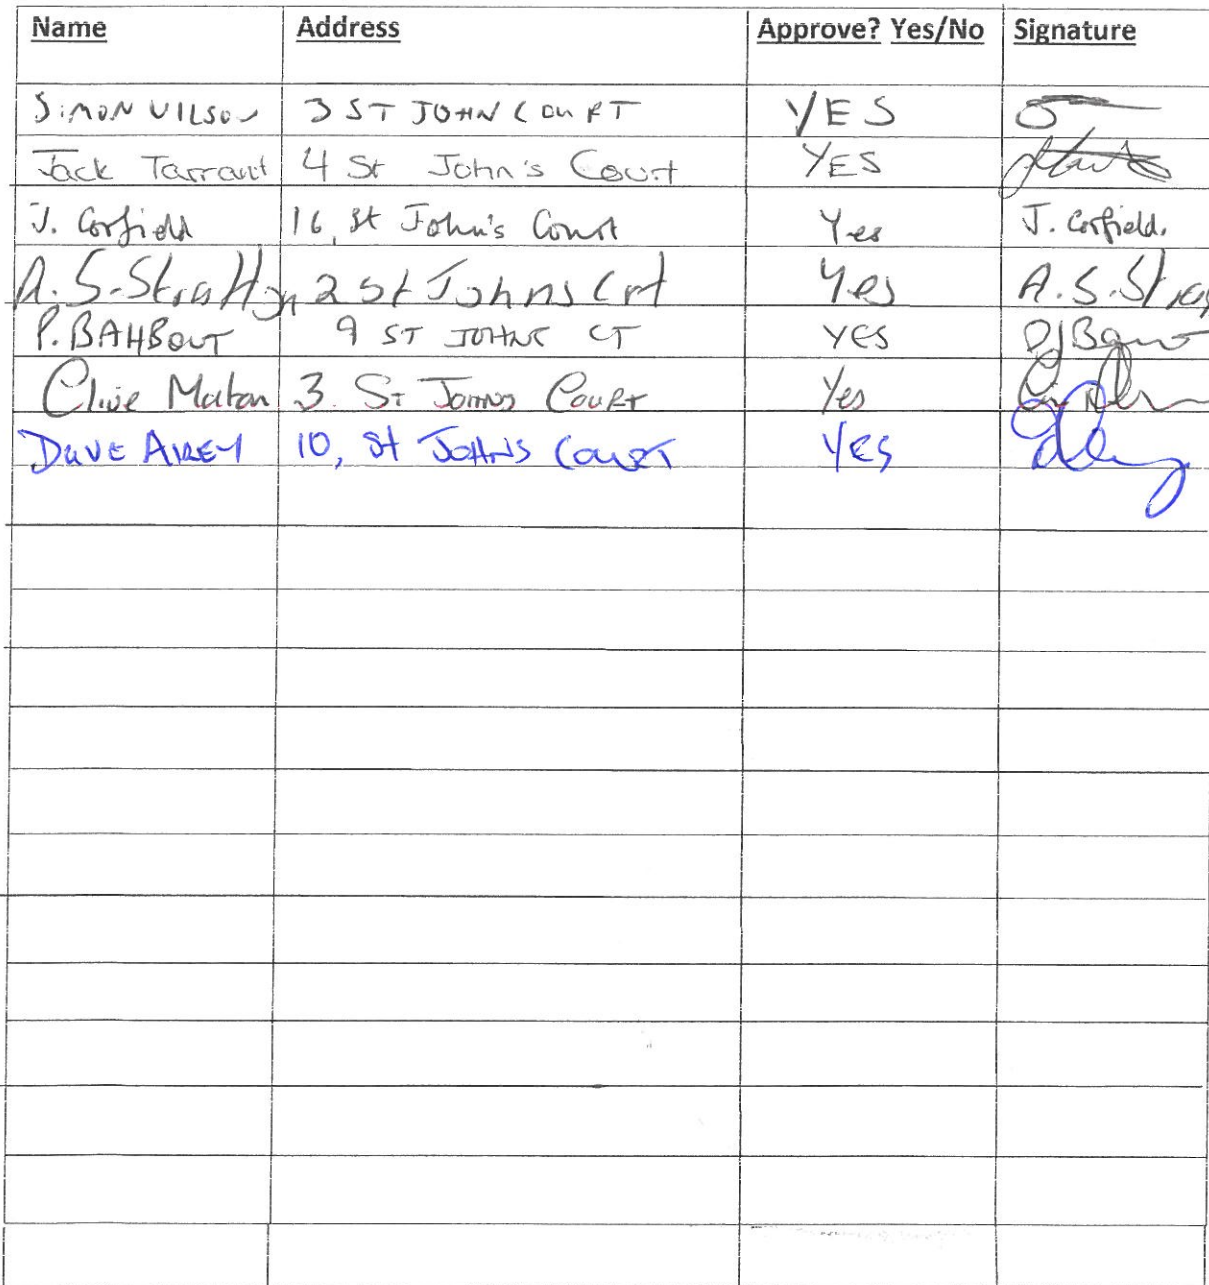 Name Address Approve? Yes/No Signature
SIMON WILSON 3 ST JOHN COURT YES
Jack Tarrant 4 St John's Court YES
J. Corfield 16, St John's Court Yes J. Corfield.
A.S.Stratton 2 St Johns Crt Yes A.S.Stra
P. BAHBOUT 9 ST JOHNS CT YES
Clive Maton 3. ST JOHNS COURT Yes
DAVE AIREY 10, St JOHNS COURT YES